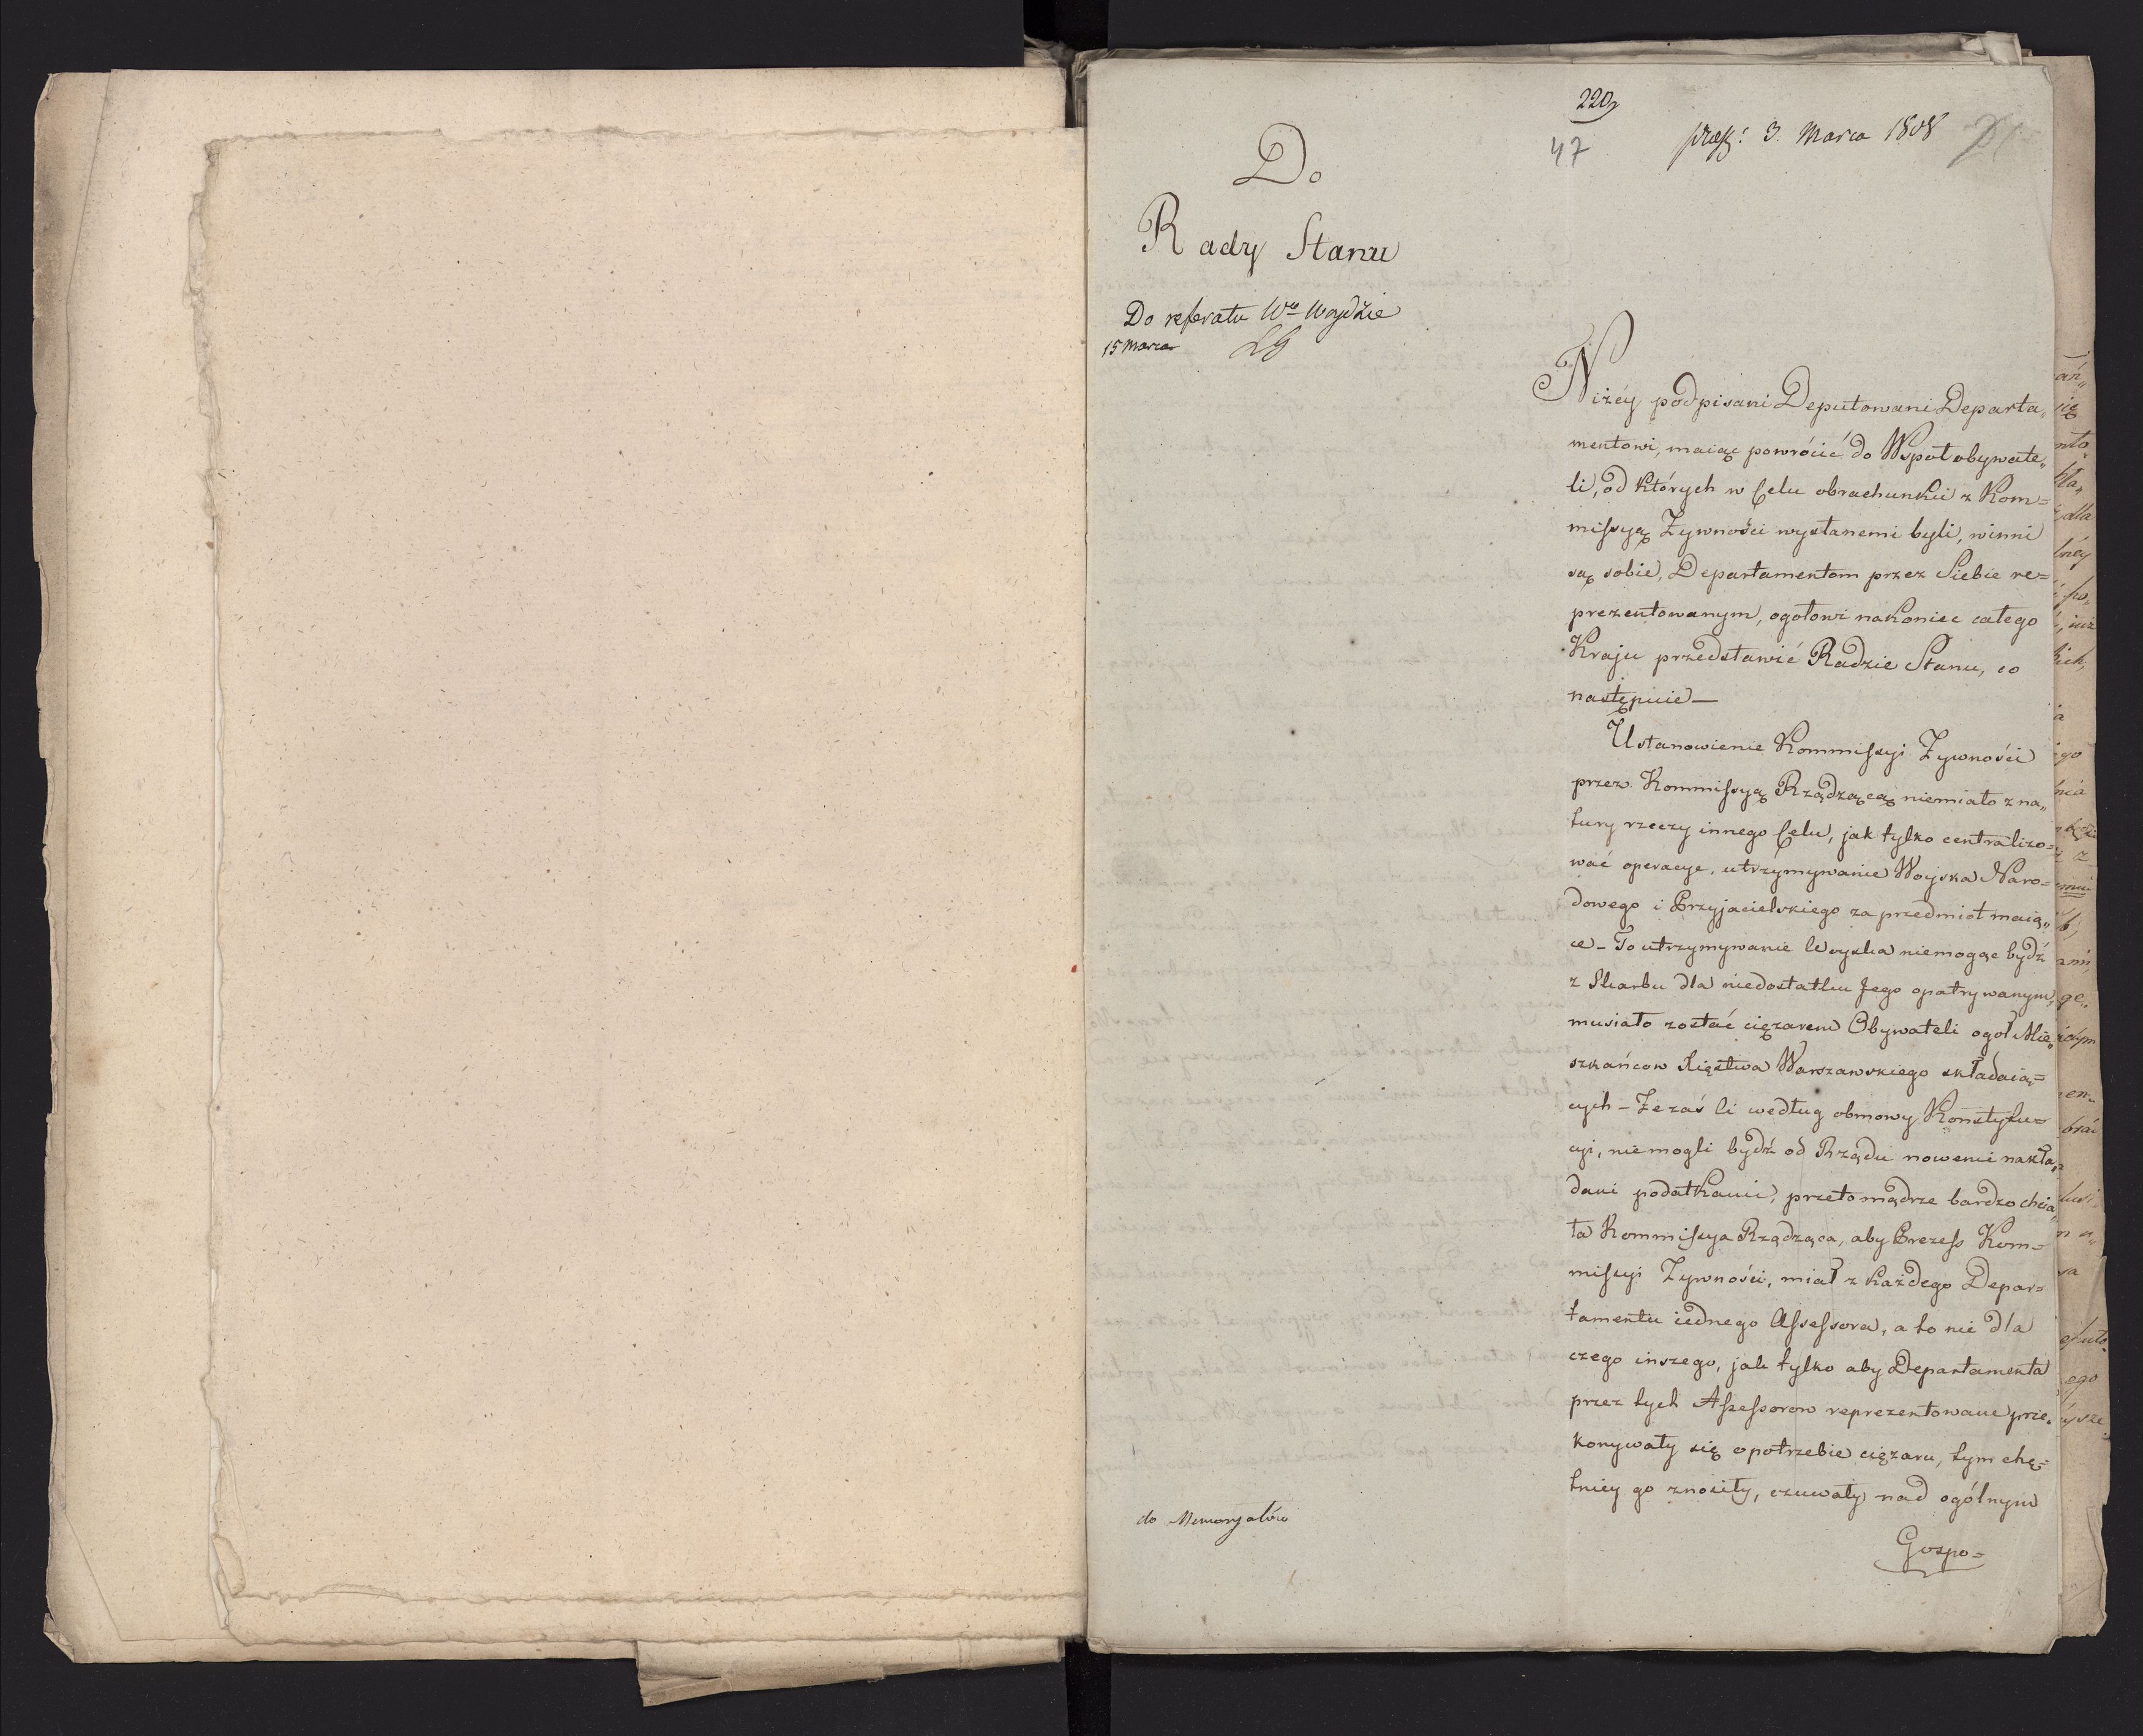 220
47
præs: 3. Marca 1808
Do
Rady Stanu
Do referatu Wo Woydzie
15 Marca
Niżéy podpisani Deputowani Departa„
mentowi, maiąc powrócić do Wspołobywate„
li, od których w Celu obrachunku z Kom=
missyą Żywności wysłanemi byli, winni
są sobie, Departamentom przez Siebie re=
prezentowanym, ogołowi nakoniec całego
Kraju przedstawić Radzie Stanu, co
następuie —
Ustanowienie Kommissyi Żywności
przez Kommissyą Rządzącą niemiało z na„
tury rzeczy innego Celu, jak tylko centralizo=
wać operacye, utrzymywanie Woyska Naro=
dowego i Przyjacielskiego za przedmiot maią„
ce – To utrzymywanie Woyska niemogąc bydź
z Skarbu dla niedostatku Jego opatrywanym,
musiało zostać ciężarem Obywateli ogoł Mie„
szkańcow Xięstwa Warszawskiego składaią=
cych – Że zaś Ci według obmowy Konstytu=
cyi, niemogli bydź od Rządu nowemi nakła„
dani podatkami, przeto mądrze bardzo chcia„
ła Kommissya Rządząca, aby Prezess Kom=
missyi Żywności, miał z każdego Depar=
tamentu iednego Assessora, a to nie dla
czego inszego, jak tylko aby Departamenta
przez tych Assessorow reprezentowane prze„
konywały się o potrzebie ciężaru, tym chę=
tniey go znosiły, czuwały nad ogólnym
Gospo=
do Memoryałów